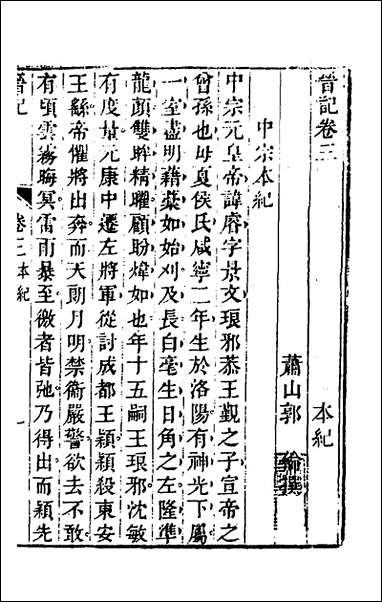 晉記卷三　本紀
蕭山郭　倫撰
中宗本紀
中宗元皇帝諱睿字景文琅邪恭王覲之子宣帝之
曾孫也母夏侯氏咸寧二年生於洛陽有神光下屬
一室盡明藉藁如始刈及長白毫生日角之左隆準
龍顏雙眸精曜顧眄煒如也年十五嗣王琅邪沈敏
有度量元康中遷左將軍從討成都王穎穎殺東安
王繇帝懼將出奔而天朗月明禁衛嚴警欲去不敢
有頃雲霧晦冥雷雨暴至徼者皆弛乃得出而穎先
晉記　卷三本紀　一